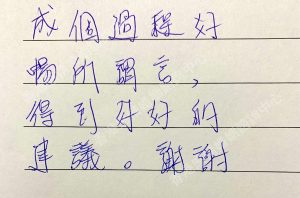 成個過程好
暢所謂言，
得到好好的
建議。謝謝